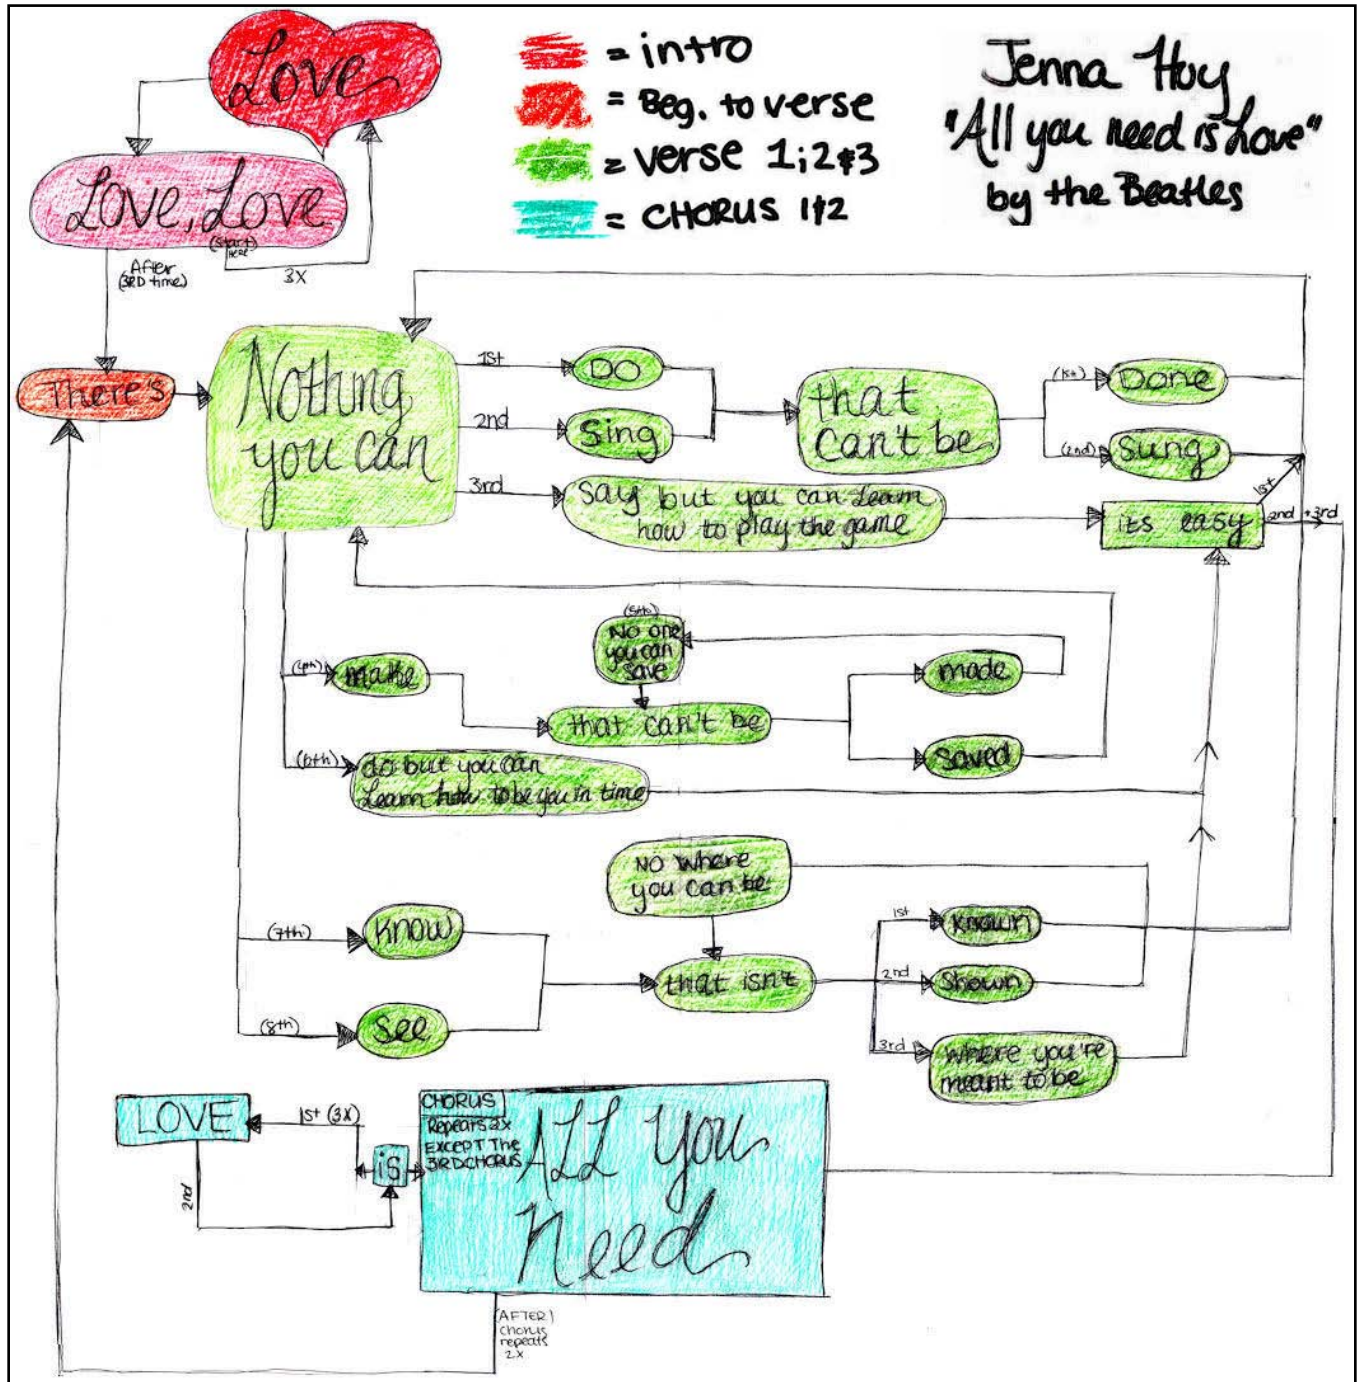 Love
Love, Love
(Start
Here)
3X
After
(3RD time)
= intro
= Beg. to verse
= verse 1;2&3
= CHORUS 1&2
Jenna Huy
"All you need is Love"
by the Beatles
There's
Nothing
you can
1st
DO
2nd
Sing
3rd
say but you can Learn
how to play the game
that
can't be
(1st)
Done
(2nd)
Sung
its easy
1st
2nd + 3rd
(4th)
make
(5th)
No one
you can
save
that can't be
made
saved
(6th)
do but you can
Learn how to be you in time
No where
you can be
(7th)
know
(8th)
See
that isn't
1st
known
2nd
Shown
3rd
where you're
meant to be
LOVE
1st (3X)
2nd
is
CHORUS
Repeats 2x
EXCEPT The
3RD CHORUS
ALL You
Need
(AFTER)
chorus
repeats
2X